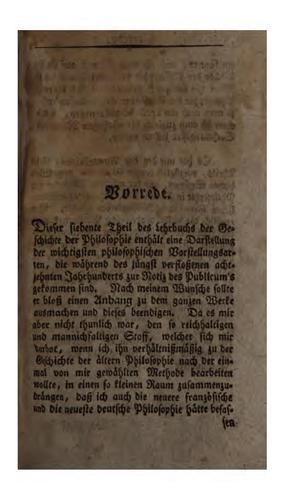 Vorrede.
Dieser siebente Theil des Lehrbuchs der Ge-
schichte der Philosophie enthält eine Darstellung
der wichtigsten philosophischen Vorstellungsar-
ten, die während des jüngst verfloßenen acht-
zehnten Jahrhunderts zur Notiz des Publicum's
gekommen sind. Nach meinem Wunsche sollte
er bloß einen Anhang zu dem ganzen Werke
ausmachen und dieses beendigen. Da es mir
aber nicht thunlich war, den so reichhaltigen
und mannichfaltigen Stoff, welcher sich mir
darbot, wenn ich ihn verhältnißmäßig zu der
Geschichte der ältern Philosophie nach der ein-
mal von mir gewählten Methode bearbeiten
wollte, in einen so kleinen Raum zusammenzu-
drängen, daß ich auch die neuere französische
und die neueste deutsche Philosophie hätte befas-
sen